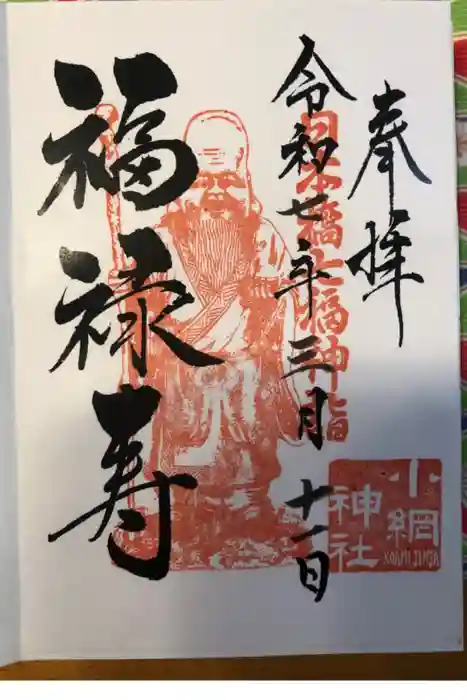 奉拝
日本橋七福神詣
令和七年三月十一日
小網
神社
KOAMI JINJA
福禄寿